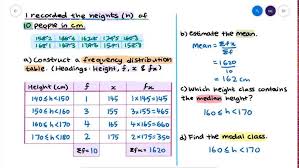 I recorded the heights (h) of
10 people in cm.
a) Construct a frequency distribution
table. (Headings: Height, f, x & fx)
Height (cm) f x fx
140≤h<150 1 145 1×145=145
150≤h<160 3 155 3×155=465
160≤h<170 4 165 4×165=660
170≤h<180 2 175 2×175=350
Σf=10 Σfx=1620
b) Estimate the mean.
Mean = Σfx
Σf
= 1620
10
= 162cm
c) Which height class contains
the median height?
160≤h<170
d) Find the modal class.
160≤h<170